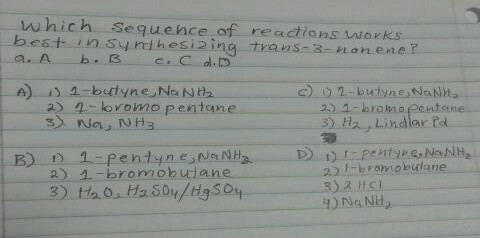 Which sequence of reactions works
best in synthesizing trans-3-nonene?
a. A b. B c. C d. D
A) 1) 1-butyne, NaNH2
2) 1-bromopentane
3) Na, NH3
B) 1) 1-pentyne, NaNH2
2) 1-bromobutane
3) H2O, H2SO4/HgSO4
C) 1) 1-butyne, NaNH2
2) 1-bromopentane
3) H2, Lindlar Pd
D) 1) 1-pentyne, NaNH2
2) 1-bromobutane
3) 2 HCl
4) NaNH2